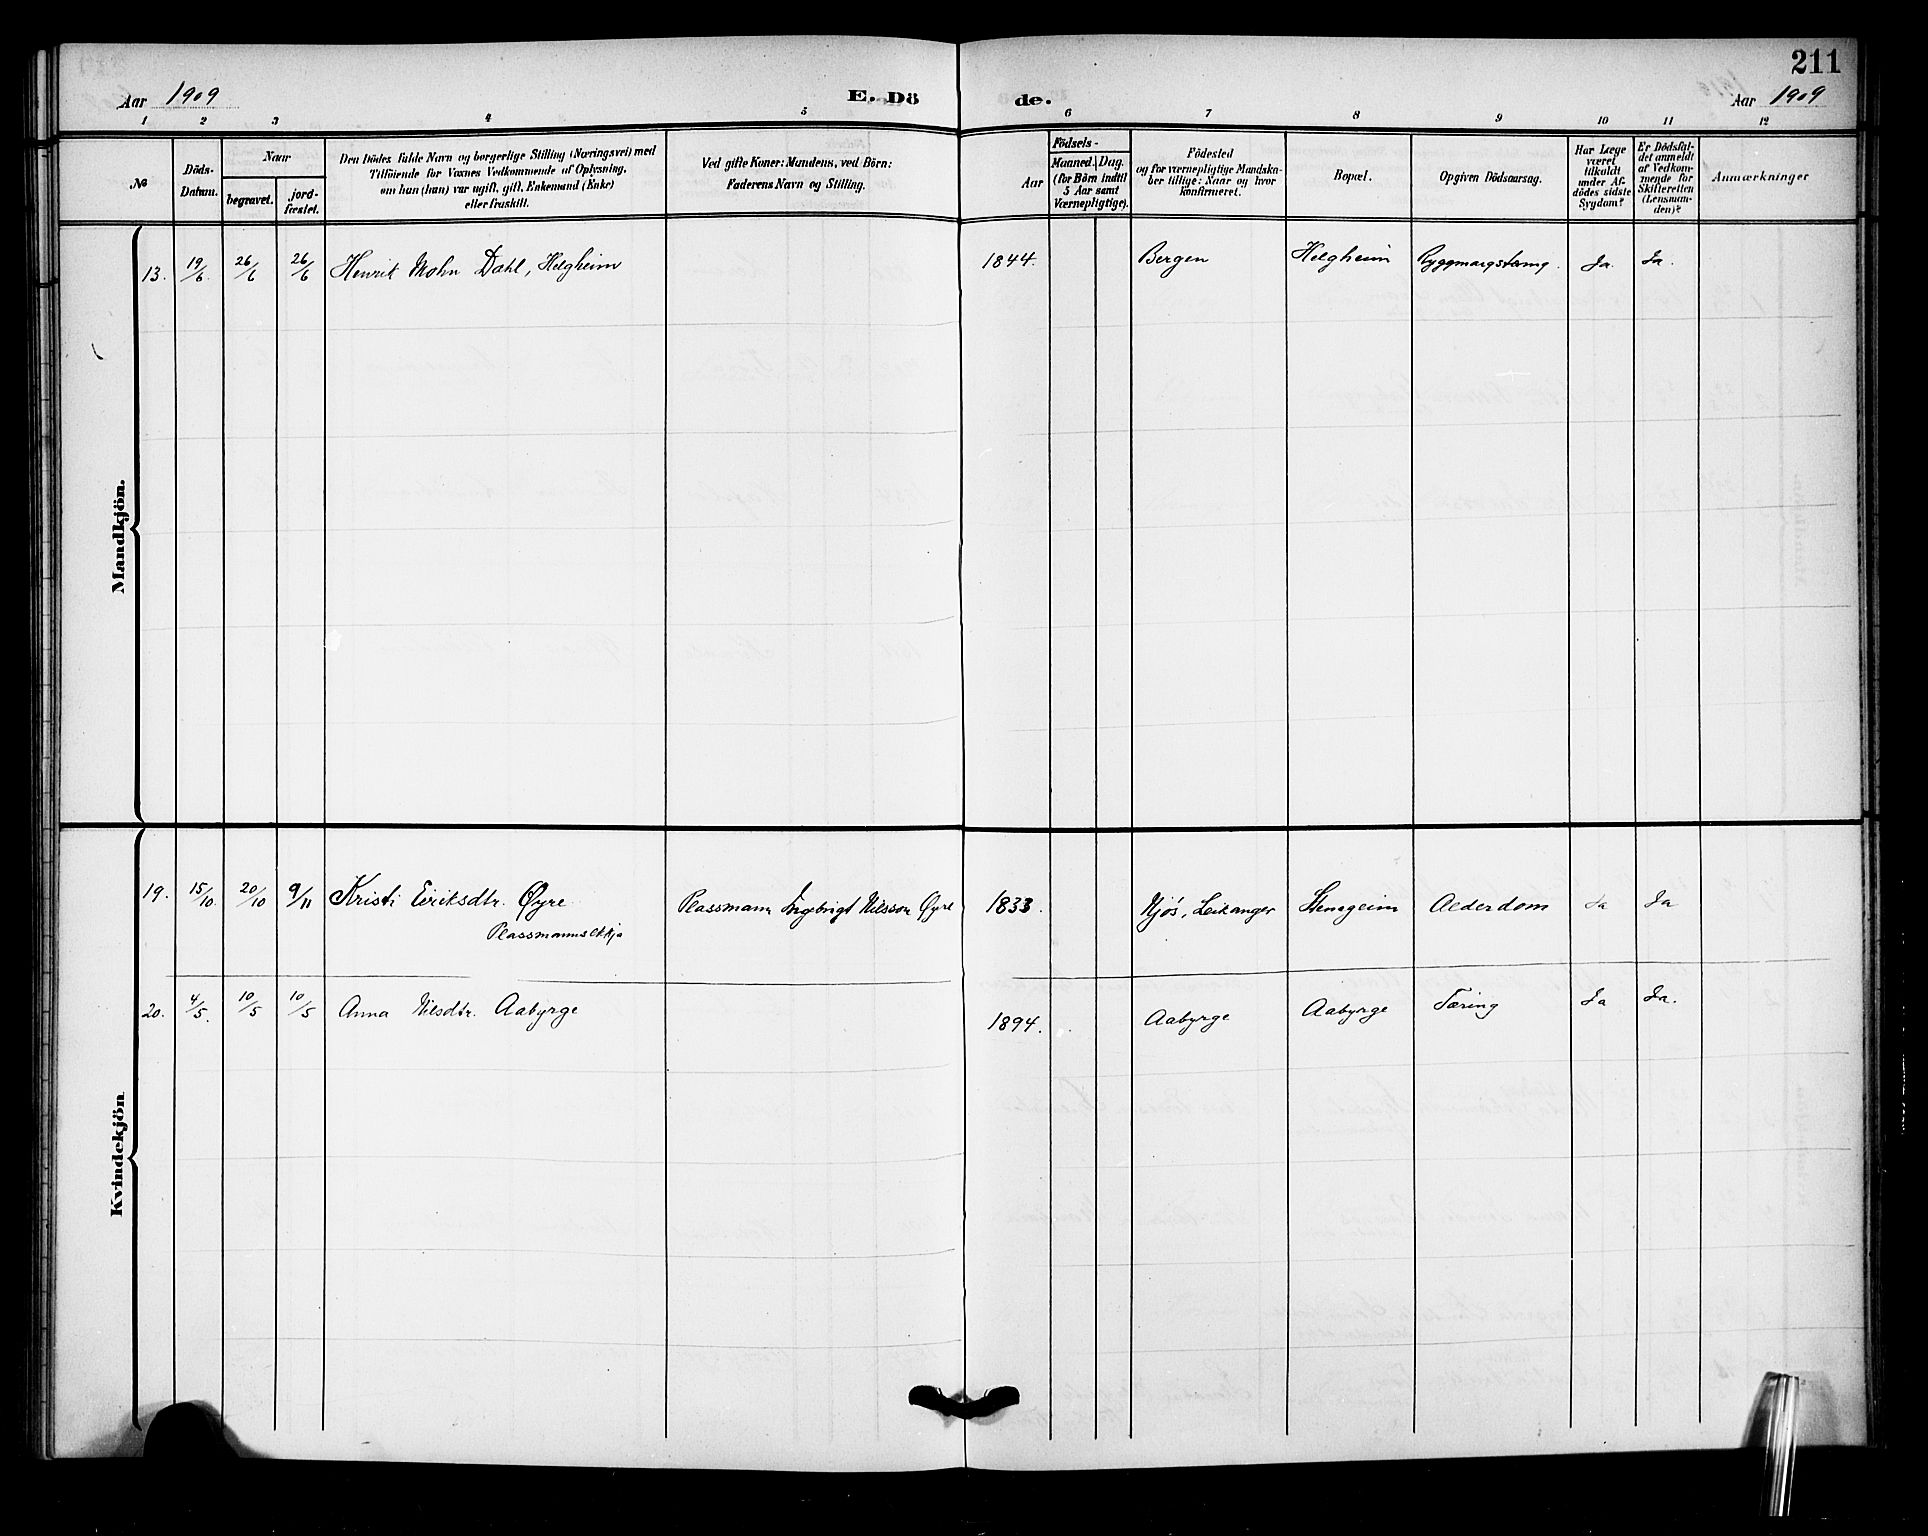 211
Aar 1909
E. Dö
de.
Aar 1909
1 2 3 4 5 6 7 8 9 10 11 12
№
Döds-
Datum.
Naar
begravet.
jord-
fæstet.
Den Dödes fulde Navn og borgerlige Stilling (Næringsvei) med
Tilföiende for Voxnes Vedkommende af Oplysning,
om han (hun) var ugift, gift, Enkemand (Enke)
eller fraskilt.
Ved gifte Koner: Mandens, ved Börn:
Faderens Navn og Stilling.
Födsels-
Aar
Maaned. Dag.
(for Börn indtil
5 Aar samt
Værnepligtige).
Födested
og for værnepligtige Mandska-
ber tillige: Naar og hvor
konfirmeret.
Bopæl.
Opgiven Dödsaarsag.
Har Læge
været
tilkaldt
under Af-
dödes sidste
Sygdom?
Er Dödsfal-
det anmeldt
af Vedkom-
mende for
Skifteretten
(Lensman-
den)?
Anmærkninger
Mandkjön.
13. 19/6. 26/6 26/6 Henrik Mohn Dahl, Helgheim 1844. Bergen Helgheim Ryggmargstæring. Ja. Ja.
Kvindekjön
19. 15/10. 20/10 9/11 Kristi Eiriksdtr. Øyre Plassmann Ingebrigt Nilsson Øyre 1833. Njøs, Leikanger Stensgeim Alderdom Ja Ja
Plassmannsekkja
20. 4/5. 10/5 10/5 Anna Nilsdtr. Aabyrge 1894. Aabyrge Aabyrge Tæring Ja Ja.